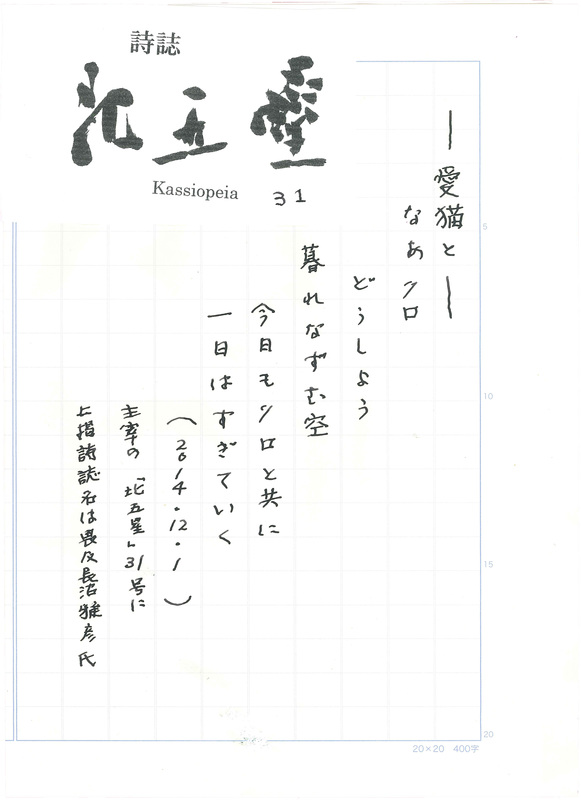 詩誌
北五星
Kassiopeia 31
―愛猫と―
なあクロ
どうしよう
暮れなずむ空
今日もクロと共に
一日はすぎていく
(2014.12.1)
主宰の「北五星」31号に
上掲詩誌名は畏友長沼雅彦氏
5
10
15
20
20×20 400字